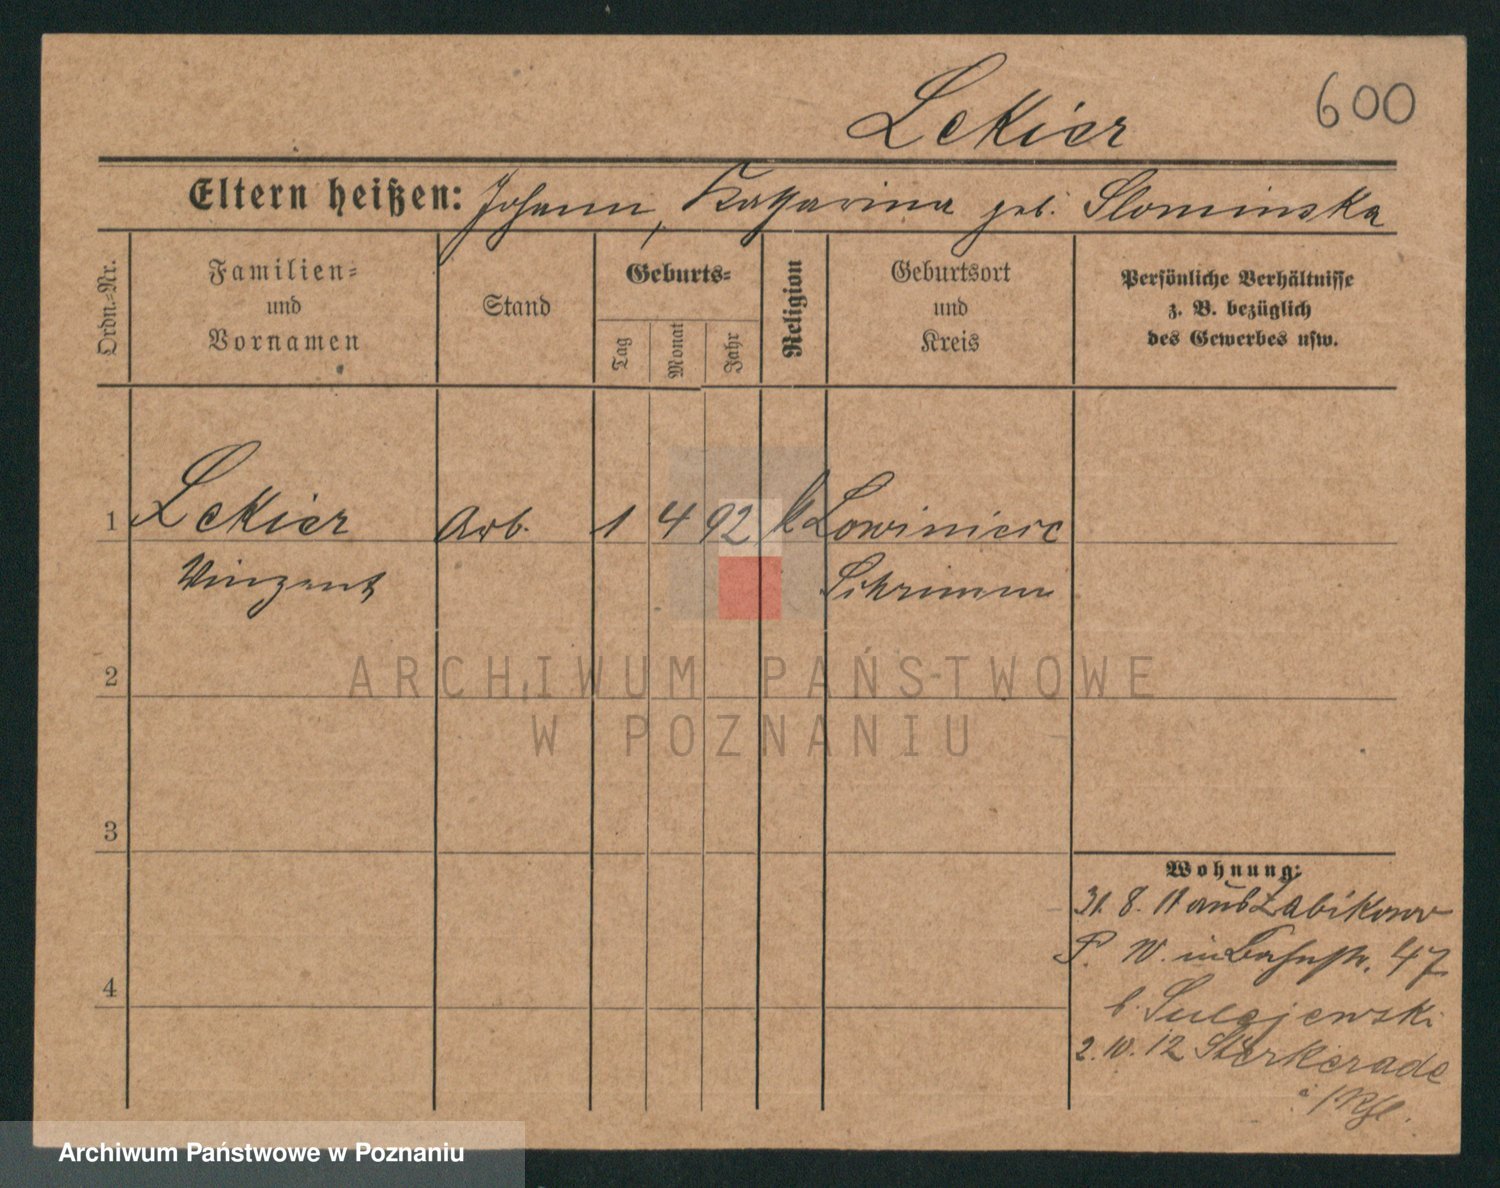 Lekier
600
Eltern heißen: Johann, Katharina geb. Slominska
Ordn.-Nr.
Familien-
und
Vornamen
Stand
Geburts-
Tag
Monat
Jahr
Religion
Geburtsort
und
Kreis
Persönliche Verhältnisse
z. B. bezüglich
des Gewerbes usw.
1 Lekier Arb. 1 4 92 k Lowiniec
Vinzent Schrimm
2
ARCHIWUM PAŃSTWOWE
W POZNANIU
3
Wohnung:
31. 8. 11 aus Zabikowo
P. W. in Bahnstr. 47
b. Sulejewski
4
2. 10. 12 Sterkerade
Archiwum Państwowe w Poznaniu